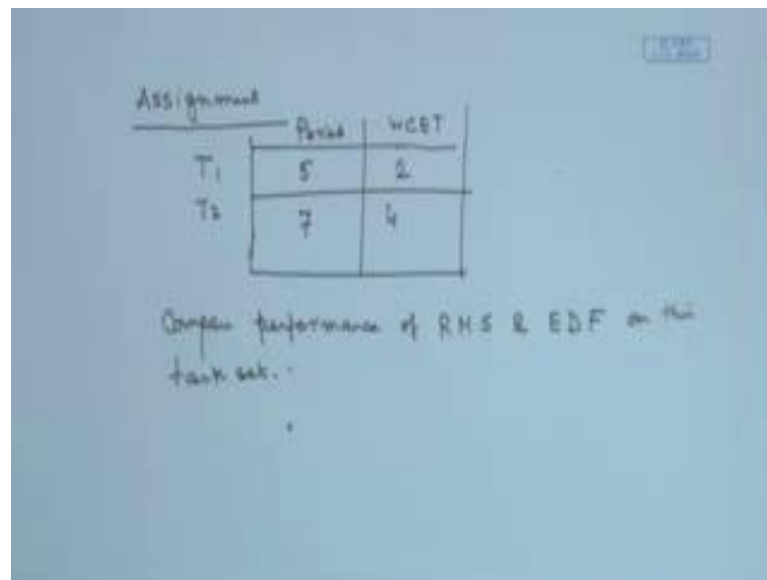 Assignment
Period WCET
T1 5 2
T2 7 4
Compare performance of RMS & EDF on this
task set.